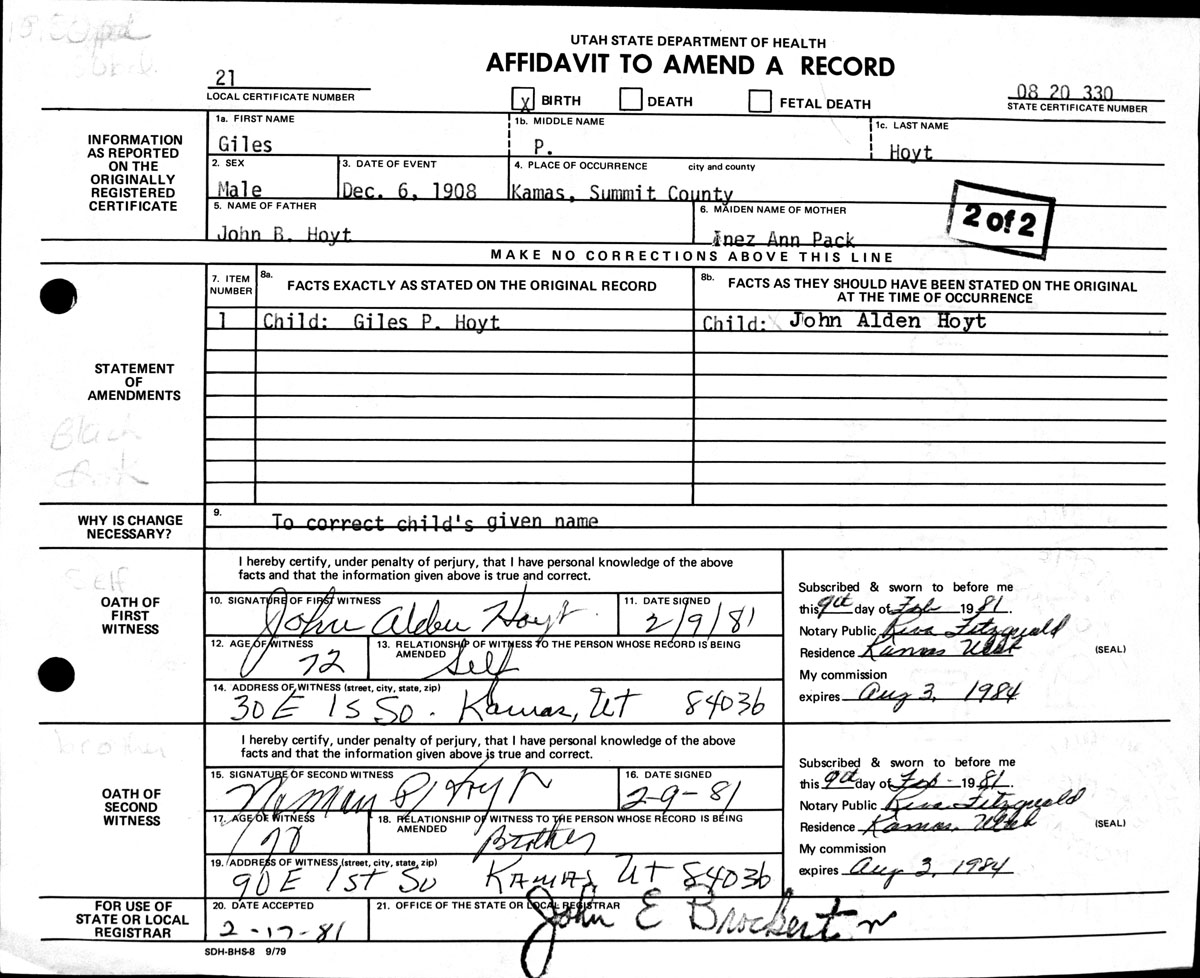 UTAH STATE DEPARTMENT OF HEALTH
AFFIDAVIT TO AMEND A RECORD
21
LOCAL CERTIFICATE NUMBER
X BIRTH DEATH FETAL DEATH
08 20 330
STATE CERTIFICATE NUMBER
INFORMATION AS REPORTED ON THE ORIGINALLY REGISTERED CERTIFICATE
1a. FIRST NAME 1b. MIDDLE NAME 1c. LAST NAME
Giles P. Hoyt
2. SEX 3. DATE OF EVENT 4. PLACE OF OCCURRENCE city and county
Male Dec. 6, 1908 Kamas, Summit County
5. NAME OF FATHER 6. MAIDEN NAME OF MOTHER
John B. Hoyt Inez Ann Pack
2 of 2
MAKE NO CORRECTIONS ABOVE THIS LINE
STATEMENT OF AMENDMENTS
7. ITEM NUMBER 8a. FACTS EXACTLY AS STATED ON THE ORIGINAL RECORD
8b. FACTS AS THEY SHOULD HAVE BEEN STATED ON THE ORIGINAL AT THE TIME OF OCCURRENCE
1 Child: Giles P. Hoyt Child: John Alden Hoyt
Black
WHY IS CHANGE NECESSARY?
9. To correct child's given name
Self
OATH OF FIRST WITNESS
I hereby certify, under penalty of perjury, that I have personal knowledge of the above
facts and that the information given above is true and correct.
10. SIGNATURE OF FIRST WITNESS 11. DATE SIGNED
John Alden Hoyt 2/9/81
12. AGE OF WITNESS 13. RELATIONSHIP OF WITNESS TO THE PERSON WHOSE RECORD IS BEING AMENDED
72 Self
14. ADDRESS OF WITNESS (street, city, state, zip)
30 E 1s So. Kamas, Ut 84036
Subscribed & sworn to before me
this 9th day of Feb 1981.
Notary Public Reva Fitzgerald
Residence Kamas Utah (SEAL)
My commission
expires Aug 3, 1984
brother
OATH OF SECOND WITNESS
I hereby certify, under penalty of perjury, that I have personal knowledge of the above
facts and that the information given above is true and correct.
15. SIGNATURE OF SECOND WITNESS 16. DATE SIGNED
2-9-81
17. AGE OF WITNESS 18. RELATIONSHIP OF WITNESS TO THE PERSON WHOSE RECORD IS BEING AMENDED
70 Brother
19. ADDRESS OF WITNESS (street, city, state, zip)
90 E 1st So Kamas, Ut 84036
Subscribed & sworn to before me
this 9th day of Feb 1981
Notary Public Reva Fitzgerald
Residence Kamas, Utah (SEAL)
My commission
expires Aug 3, 1984
FOR USE OF STATE OR LOCAL REGISTRAR
20. DATE ACCEPTED 21. OFFICE OF THE STATE OR LOCAL REGISTRAR
2-17-81 John E Brockert
SDH-BHS-8 9/79